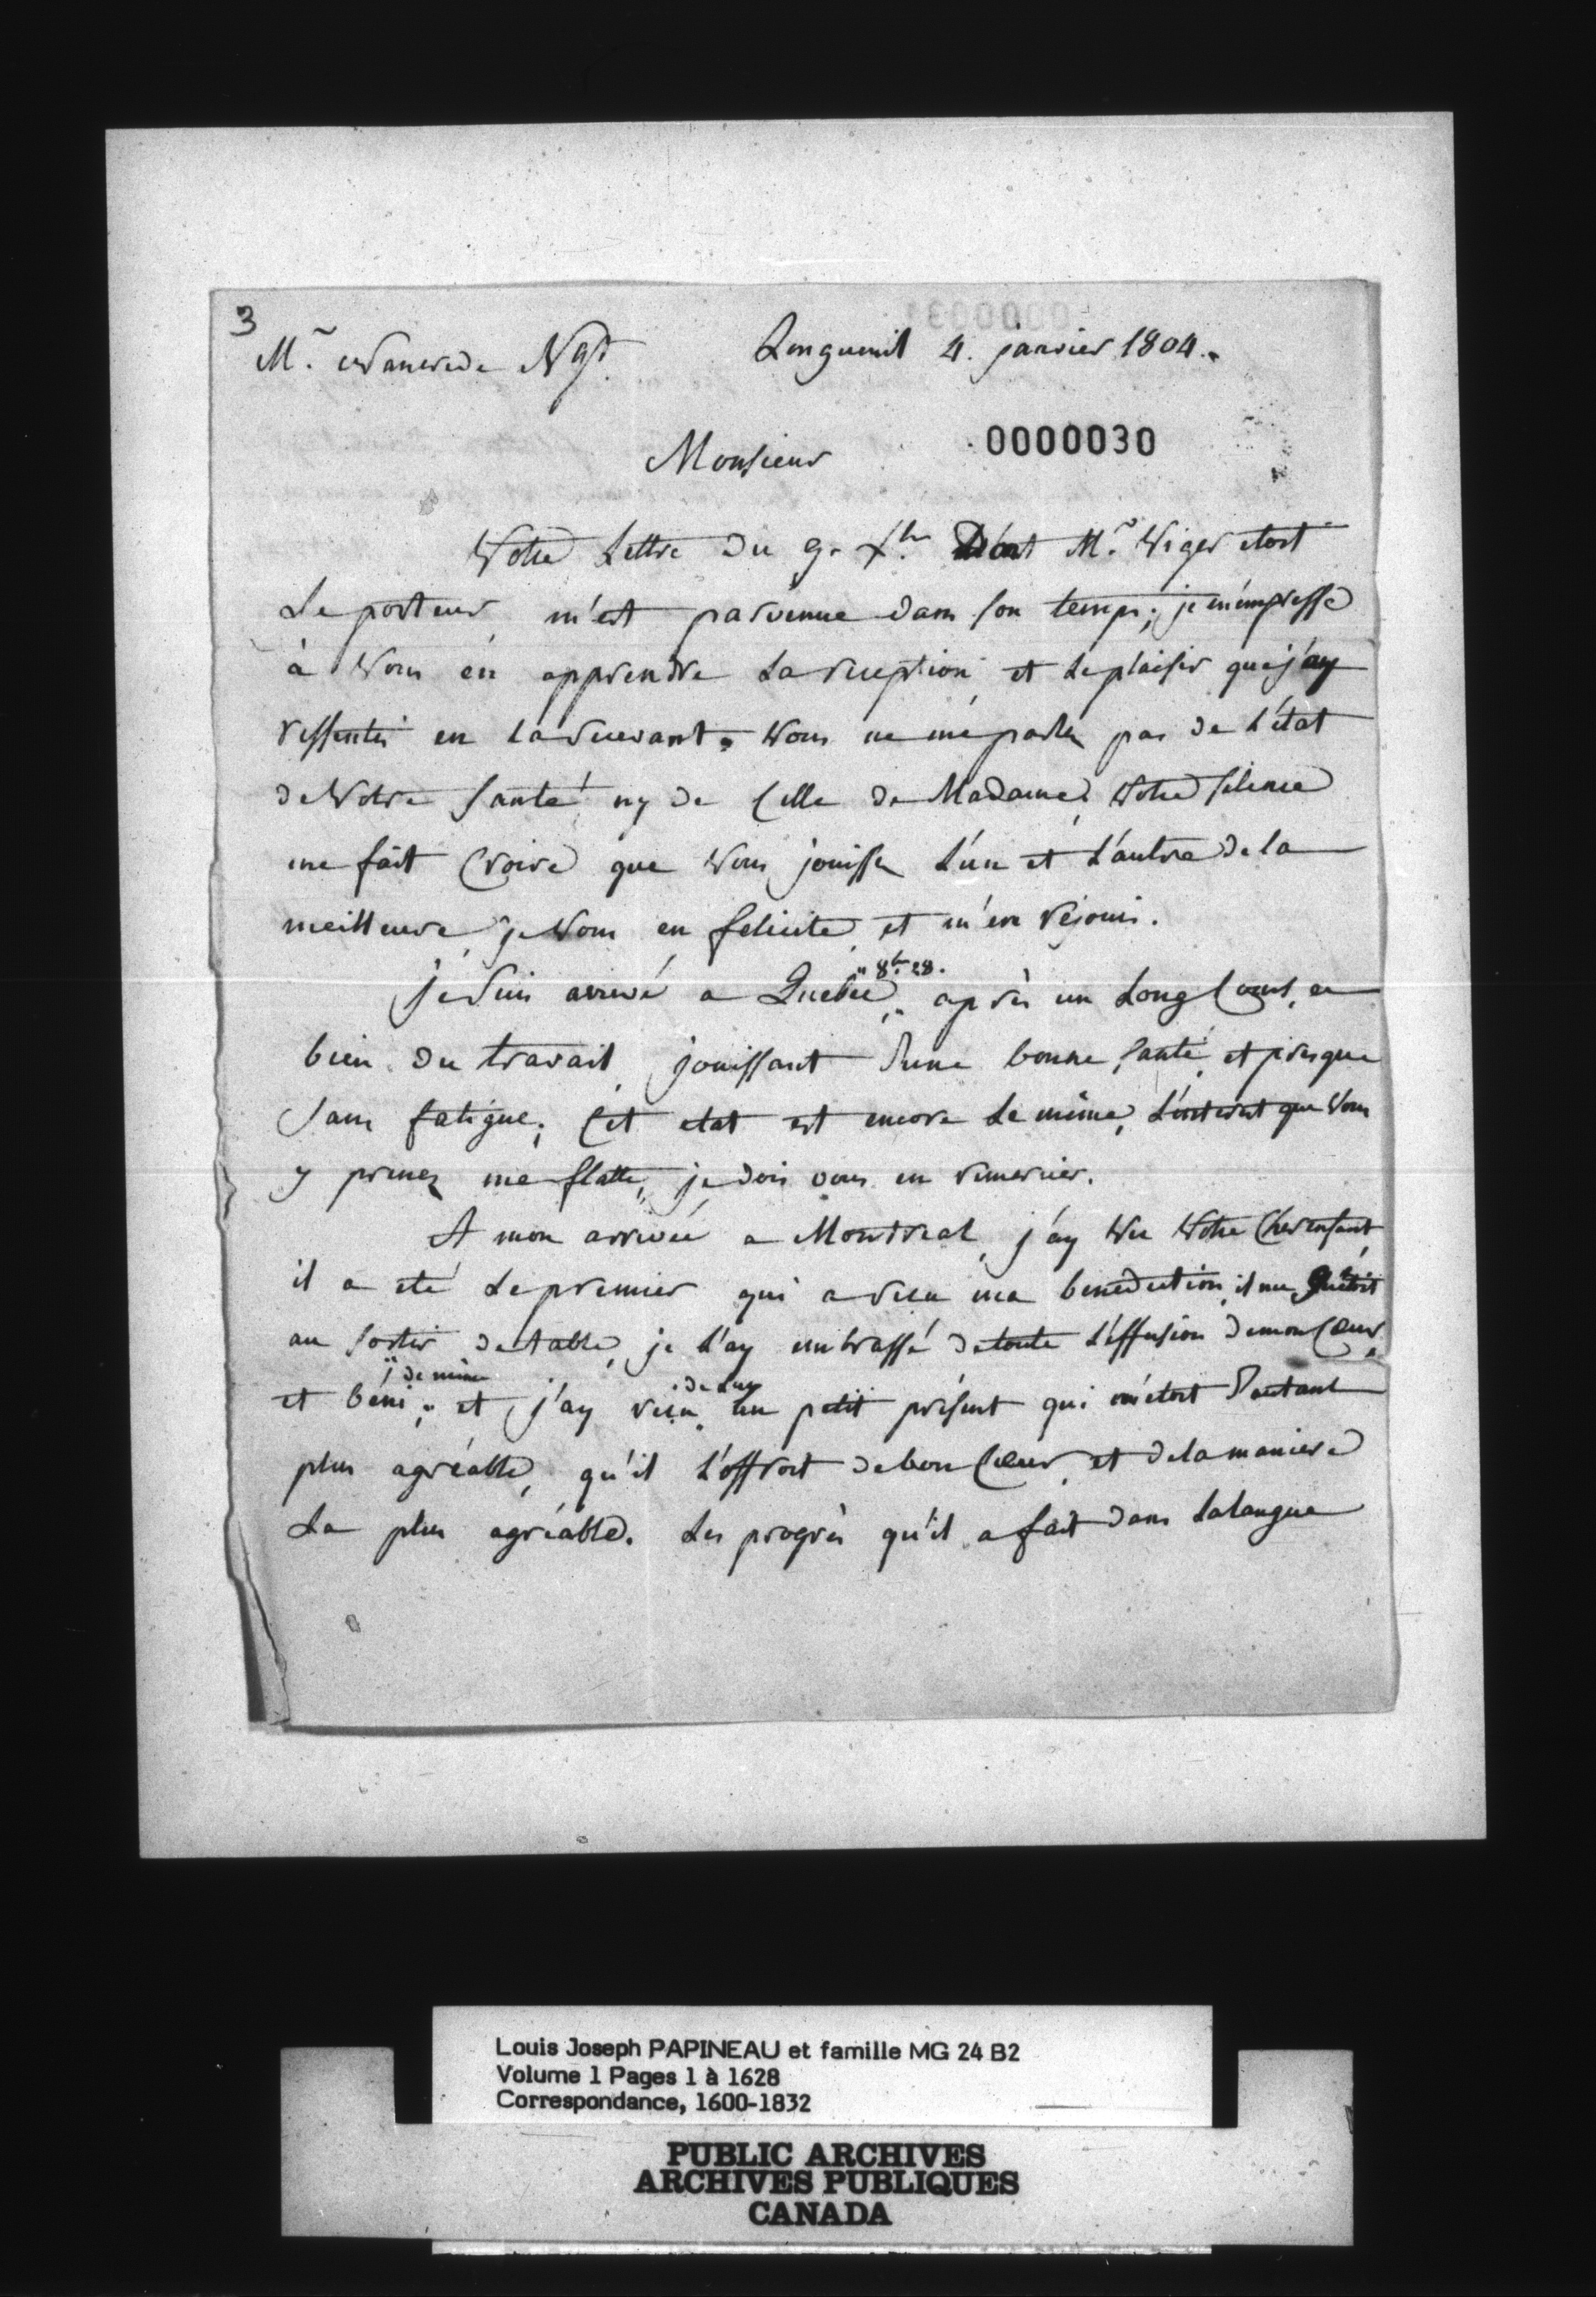 3
Mr. Wanwede Ngt.
Longueuil 4. janvier 1804.
0000030
Monsieur
Votre Lettre du 9. Xbr. Dont Mr. Viger etoit
Le porteur m'est parvenue dans son temps; je m'empresse
à Vous en apprendre La reception et Le plaisir que j'ay
ressenti en La recevant. Vous ne me parlez pas de L'état
de Votre santé ny de Celle de Madame, Votre silence
me fait Croire que Vous jouissez L'un et L'autre de la
meilleure, je Vous en felicite, et m'en rejouis.
je suis arrivé a Quebec " 8br. 28. " après un Long Cours, et
bien du travail, jouissant d'une bonne santé, et presque
sans fatigue; Cet etat est encore Le même, L'interest que Vous
y prenez me flatte, je dois vous en remercier.
A mon arrivée a Montreal, j'ay Vu Votre Cher enfant,
il a eté Le premier qui a reçu ma benediction, il me guetoit
au sortir de table, je L'ay embrassé de toute L'effusion de mon Coeur,
et béni " de même " et j'ay reçu " de Luy " un petit présent qui m'etoit d'autant
plus agréable, qu'il L'offroit de bon Coeur, et de la maniere
La plus agréable. Les progrès qu'il a fait dans La langue
Louis Joseph PAPINEAU et famille MG 24 B2
Volume 1 Pages 1 à 1628
Correspondance, 1600-1832
PUBLIC ARCHIVES
ARCHIVES PUBLIQUES
CANADA